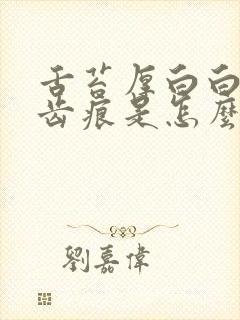 舌苔厚白白
齿痕是怎麼
劉嘉偉